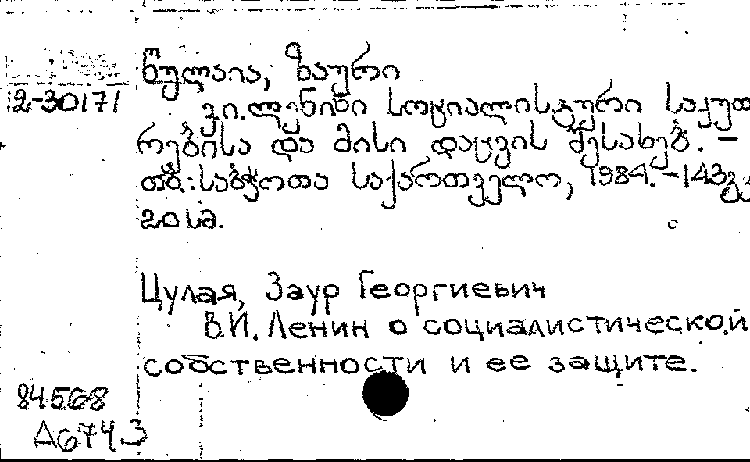 წულაია, ზაური
2-30171
ვ.ი.ლენინი სოციალისტური საკუთ
რებისა და მისი დაცვის შესახებ. –
თბ.:საბჭოთა საქართველო, 1984.-143გვ
20სმ.
Цулая, Заур Георгиевич
В.И. Ленин о социалистической
собственности и ее защите.
84568
Д6743